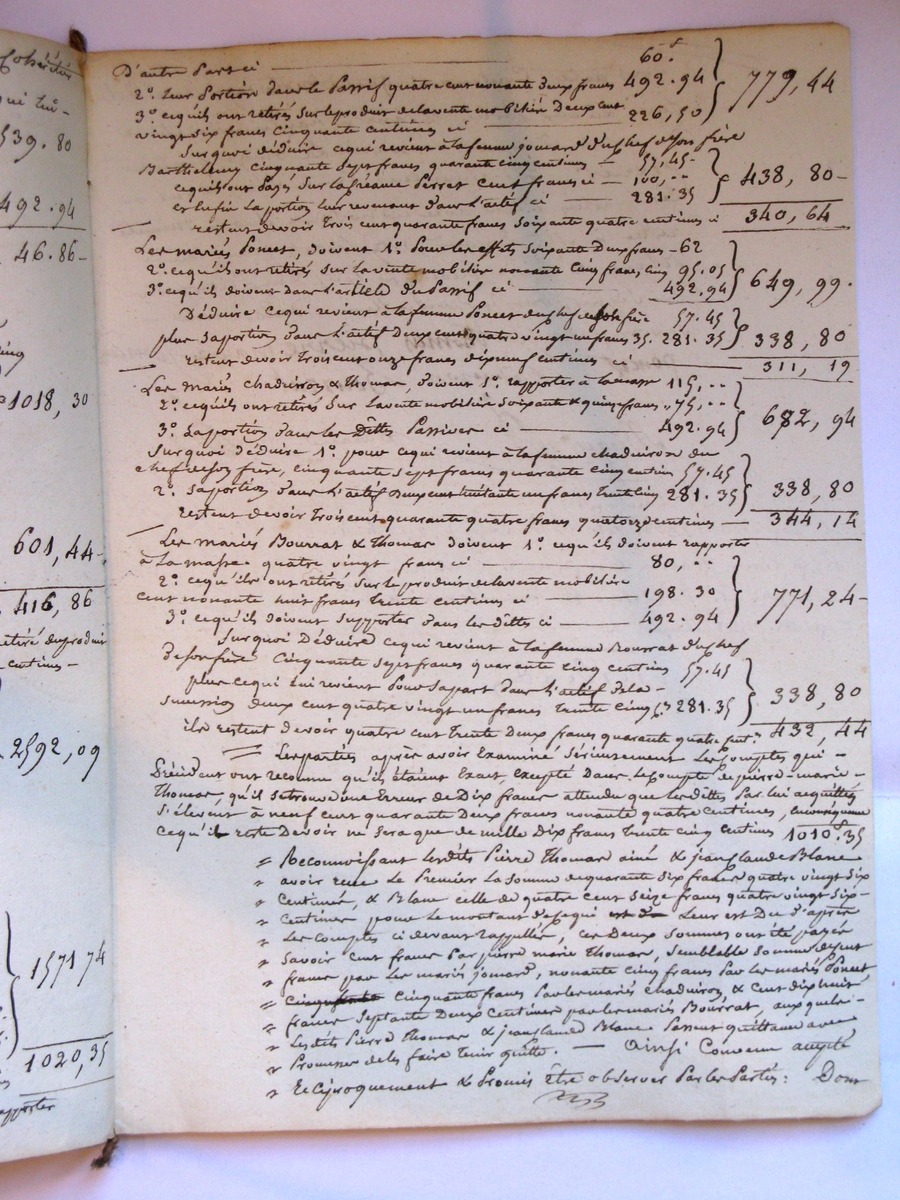 Cohéritiers
539. 80
492. 94
46. 86 -
1018, 30
601, 44 -
416, 86
retiré du produit
centimes -
2592, 09
1571 74
1020, 35
rapporter
D'autre Part ci 60.f
2° leur Portion dans le Passif quatre cent nonante deux francs 492. 94 779, 44
3° ce qu'ils ont retirés sur le produit de la vente mobiliére deux cent
vingt six francs cinquante centimes ci 226, 50
Sur quoi déduire ce qui revient à la femme jomard du chef de son frère
Barthelemy cinquante sept francs quarante cinq centimes 57. 45 -
ce qu'ils ont payé sur la créance Perret cent francs ci 100, .. 438, 80 -
et enfin la portion leur revenant dans l'actif ci 281. 35
restent devoir trois cent quarante francs soixante quatre centimes ci 340, 64
Les mariés Poncet, doivent 1° Pour les effets soixante deux francs - 62
2° ce qu'ils ont retirés sur la vente mobiliére nonante cinq francs cinq 95. 05
3° ce qu'ils doivent dans l'article du Passif ci 492. 94 649, 99.
Déduire ce qui revient à la femme Poncet du chef de son frère 57. 45
plus sa portion dans l'actif deux cent quatre vingt un francs 35. 281. 35 338, 80
restent devoir trois cent onze francs dix neuf centimes ci 311, 19
Les mariés chaduiron & Thomas, doivent 1° rapporter à la masse 115, ..
2° ce qu'ils ont retirés sur la vente mobiliére soixante & quinze francs 75, ..
3° la portion dans les Dettes Passives ci 492. 94 682, 94
Sur quoi déduire 1° pour ce qui revient à la femme chaduiron du
chef de son frère, cinquante sept francs quarante cinq centimes 57. 45
2° sa portion dans l'actif deux cent huitante un francs trente cinq 281. 35 338, 80
restent devoir trois cent quarante quatre francs quatorze centimes 344, 14
Les mariés Bourrat & Thomas doivent 1° ce qu'ils doivent rapporter
à la masse quatre vingt francs ci 80, ..
2° ce qu'ils ont retirés sur le produit de la vente mobiliére
cent nonante huit francs trente centimes ci 198. 30 771, 24 -
3° ce qu'ils doivent supporter dans les dettes ci 492. 94
Sur quoi Déduire ce qui revient à la femme Bourrat du chef
de son frère cinquante sept francs quarante cinq centimes 57. 45
plus ce qui lui revient pour sa part dans l'actif de la
succession deux cent quatre vingt un francs trente cinq 281. 35 338, 80
ils restent devoir quatre cent trente deux francs quarante quatre cent. 432, 44
Les parties après avoir Examiné sérieusement les comptes qui -
Précédent ont reconnu qu'ils étaient Exact, excepté dans le compte de pierre - marie -
Thomas, qu'il se trouve une Erreur de Dix francs attendu que les dettes par lui acquittées
s'élevent à neuf cent quarante deux francs nonante quatre centimes, en conséquence
ce qu'il reste Devoir ne sera que de mille dix francs trente cinq centimes 1010.f 35
Reconnoissant lesdits Pierre Thomas ainé & jean claude Blanc
avoir reçu le Premier la somme de quarante six francs quatre vingt six
centimes, & Blanc celle de quatre cent seize francs quatre vingt six -
centimes pour le montant de ce qui leur est Du d'après
les comptes ci devant rappellés, ces Deux sommes ont été payées
savoir cent francs par pierre marie Thomas, semblable somme de cent
francs par les mariés jomard, nonante cinq francs par les mariés Poncet
cinquante francs par les mariés chaduiron & cent dix huit
francs septante Deux centimes par les mariés Bourrat, auxquels -
lesdits Pierre Thomas & jean claude Blanc Passent quittance avec
Promesse de les faire tenir quitte. — Ainsi convenu accepté
Réciproquement & Promis être observer Par les Parties : Dont